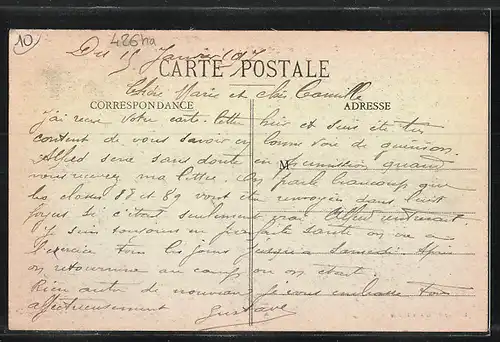 10
426ha
Du 15 Janvier 1917
CARTE POSTALE
Chère Marie et cher Camille
CORRESPONDANCE
ADRESSE
j'ai reçu votre carte-lettre hier et suis été très
content de vous savoir en bonne voie de guérison.
Alfred sera sans doute en permission quand
M
vous recevrez ma lettre. On parle beaucoup que
les classes 88 et 89 vont être renvoyés dans leurs
foyers si c'était seulement vrai
je suis toujours en parfaite santé on va à
l'exercice tous les jours jusqu'à Samedi. Après
on retournera au camp où on était.
Rien autre de nouveau je vous embrasse tous
affectueusement
Gustave